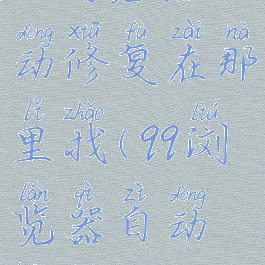 dòng xiū fù zài nà
动修复在那
lǐ zhǎo liú
里找(99浏
lǎn qì zì dòng
览器自动